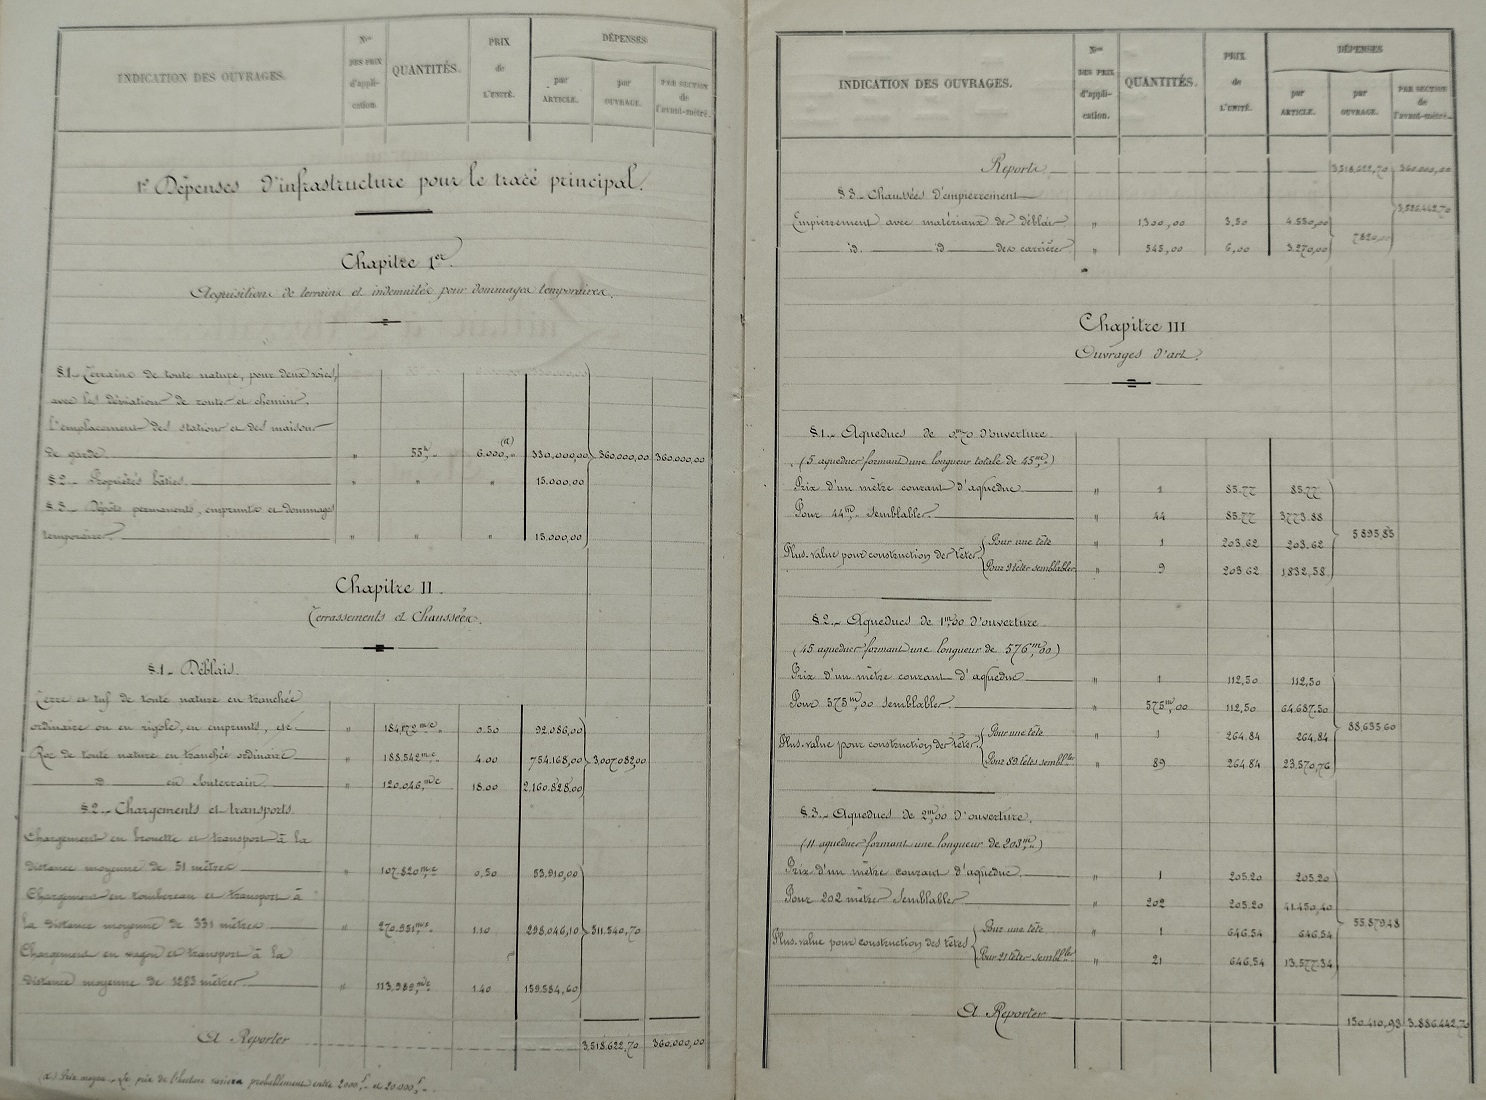 INDICATION DES OUVRAGES.
Nos DES PRIX d'appli-cation.
QUANTITÉS.
PRIX de L'UNITÉ.
DÉPENSES
par ARTICLE.
par OUVRAGE.
PAR SECTION de l'avant-métré.
1° Dépenses d'infrastructure pour le tracé principal.
Chapitre 1er
Acquisitions de terrains et indemnités pour dommages temporaires.
§.1_ Terrains de toute nature, pour deux voies,
avec les déviations de routes et chemins,
l'emplacement des stations et des maisons
de garde " 55h," 6.000," (a) 330.000,00 360.000,00 360.000,00
§.2_ Propriétés bâties " " " 15.000,00
§.3_ Dépôts permanents, emprunts et dommages
temporaires " " " 15.000,00
Chapitre II.
Terrassements et Chaussées.
§.1_ Déblais.
Terre et tuf de toute nature en tranchée
ordinaire ou en rigole, en emprunts, etc " 184.172mc," 0.50 92.086,00
Roc de toute nature en tranchée ordinaire " 188.542mc," 4.00 754.168,00 3,007.082,00
d° en souterrain " 120.046,mc 18.00 2,160.828,00
§.2_ Chargements et transports.
Chargement en brouette et transport à la
distance moyenne de 51 mètres " 107.820mc 0,50 53,910,00
Chargement en tombereau et transport à
la distance moyenne de 331 mètres " 270.951mc 1.10 298.046,10 511.540,70
Chargement en wagon et transport à la
distance moyenne de 1283 mètres " 113.989,mc 1.40 159.584,60
A Reporter 3,518.622,70 360.000,00
(a) Prix moyen._ Le prix de l'hectare variera probablement entre 2000f,_ et 20.000f,_.
INDICATION DES OUVRAGES.
Nos DES PRIX d'appli-cation.
QUANTITÉS.
PRIX de L'UNITÉ.
DÉPENSES
par ARTICLE.
par OUVRAGE.
PAR SECTION de l'avant-métré.
Reports 3,518.622,70 360.000,00
§ 3_ Chaussées d'empierrement
3,526.442,70
Empierrement avec matériaux de déblais " 1300,00 3,50 4.550,00
7820,00
id. id des carrières " 545,00 6,00 3.270,00
Chapitre III
Ouvrages d'art.
§.1._ Aqueducs de 0m70 d'ouverture
(5 aqueducs formant une longueur totale de 45m,")
Prix d'un mètre courant d'aqueduc " 1 85.77 85.77
Pour 44m," semblables " 44 85.77 3773.88
5895,85
Plus-value pour construction des têtes
Pour une tête " 1 203.62 203.62
Pour 9 têtes semblables " 9 203.62 1832,58
§.2._ Aqueducs de 1m,00 d'ouverture
(45 aqueducs formant une longueur de 576m,00)
Prix d'un mètre courant d'aqueduc " 1 112,50 112,50
Pour 575m,00 semblables " 575m,00 112,50 64.687.50
88,635.60
Plus-value pour construction des têtes
Pour une tête " 1 264.84 264.84
Pour 89 têtes sembles " 89 264.84 23,570,76
§.3._ Aqueducs de 2m,00 d'ouverture.
(11 aqueducs formant une longueur de 203m,")
Prix d'un mètre courant d'aqueduc " 1 205.20 205.20
Pour 202 mètres semblables " 202 205.20 41.450,40
55,879.48
Plus-value pour construction des têtes
Pour une tête " 1 646.54 646.54
Pour 21 têtes sembles " 21 646.54 13.577.34
A Reporter 150.410,93 3.886.442,70